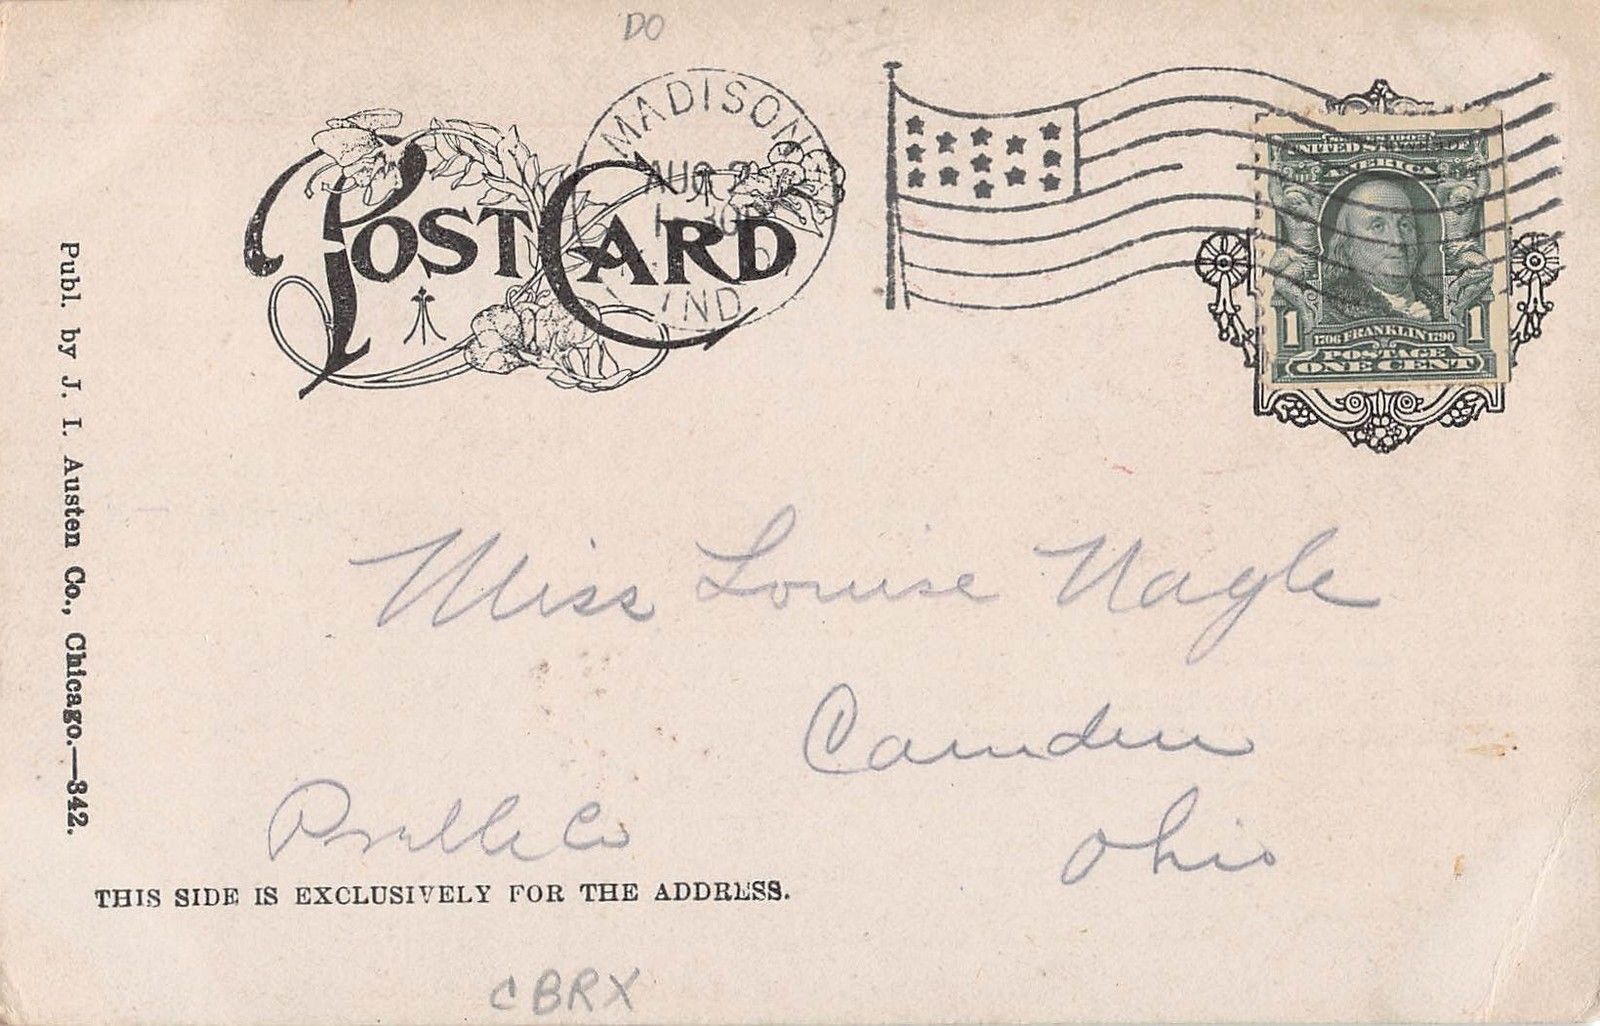 DO
MADISON
AUG 2
30P
IND
POST CARD
UNITED STATES OF
AMERICA
1 1706 FRANKLIN 1790 1
POSTAGE
ONE CENT
Miss Louise Nagle
Camden
Ohio
Preble Co
THIS SIDE IS EXCLUSIVELY FOR THE ADDRESS.
CBRX
Publ. by J. I. Austen Co., Chicago.—342.